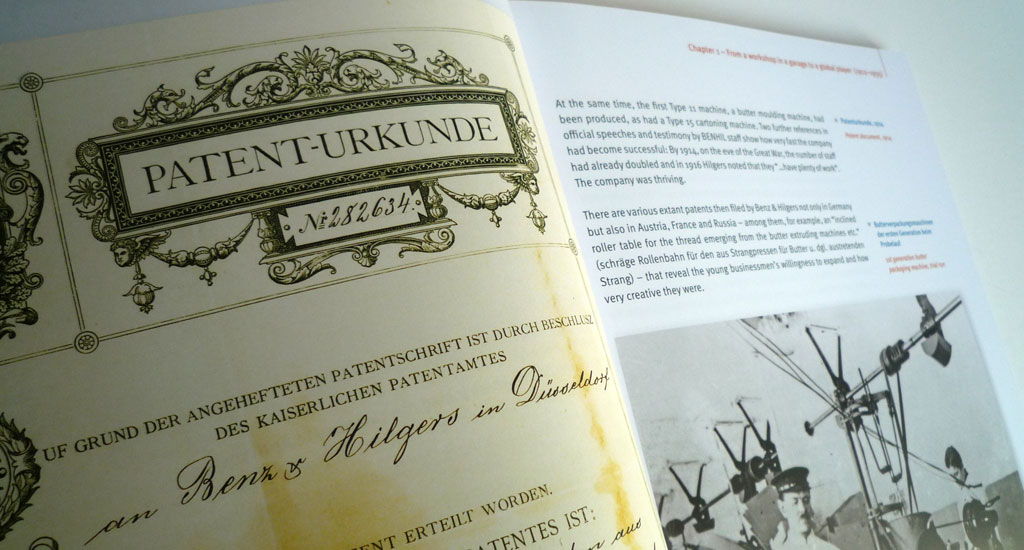 PATENT-URKUNDE
№ 282634.
UF GRUND DER ANGEHEFTETEN PATENTSCHRIFT IST DURCH BESCHLUSZ
DES KAISERLICHEN PATENTAMTES
an Benz & Hilgers in Düsseldorf
ENT ERTEILT WORDEN.
ATENTES IST:
aus
Chapter 1 – From a workshop in a garage to a global player
At the same time, the first Type 11 machine, a butter moulding machine, had
been produced, as had a Type 15 cartoning machine. Two further references in
official speeches and testimony by BENHIL staff show how very fast the company
had become successful: By 1914, on the eve of the Great War, the number of staff
had already doubled and in 1916 Hilgers noted that they "...have plenty of work".
The company was thriving.
There are various extant patents then filed by Benz & Hilgers not only in Germany
but also in Austria, France and Russia – among them, for example, an "inclined
roller table for the thread emerging from the butter extruding machines etc."
(schräge Rollenbahn für den aus Strangpressen für Butter u. dgl. austretenden
Strang) – that reveal the young businessmen's willingness to expand and how
very creative they were.
Patenturkunde, 1914
Patent document, 1914
Butterverpackungsmaschinen
der ersten Generation beim
Probelauf
1st generation butter
packaging machine, trial run